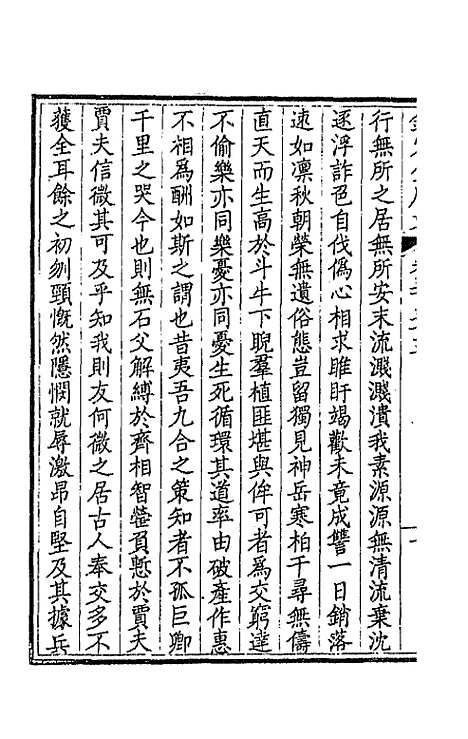 行無所之居無所安末流濺濺潰我素源源無清流棄沈
逐浮詐色自伐僞心相求睢盱竭歡未竟成讐一日銷落
速如凛秋朝榮無遺俗態豈留獨見神岳寒柏千尋無儔
直天而生高於斗牛下睨羣植匪堪與侔可者爲交窮達
不偷樂亦同樂憂亦同憂生死循環其道率由破產作惠
不相爲酬如斯之謂也昔夷吾九合之策知者不孤巨卿
千里之哭今也則無石父解縛於齊相智罃負慙於賈夫
賈夫信微其可及乎知我則友何微之居古人奉交多不
獲全耳餘之初刎頸慨然隱憫就辱激昂自堅及其據兵